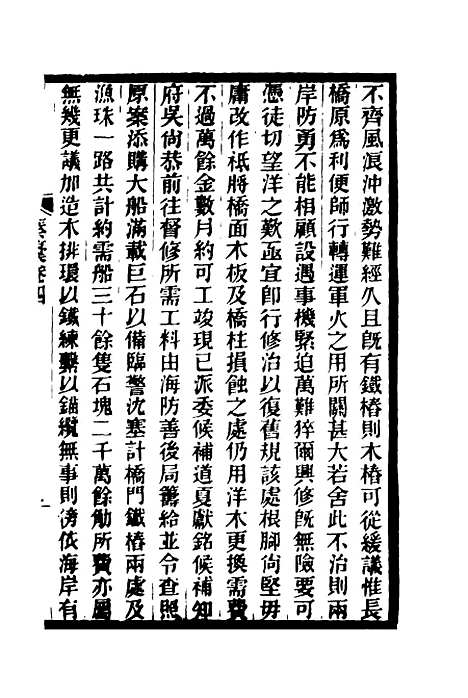 不齊風浪沖激勢難經久且旣有鐵樁則木樁可從緩議惟長
橋原爲利便師行轉運軍火之用所關甚大若舍此不治則兩
岸防勇不能相顧設遇事機緊迫萬難猝爾興修旣無險要可
憑徒切望洋之歎亟宜卽行修治以復舊規該處根腳尙堅毋
庸改作祇將橋面木板及橋柱損蝕之處仍用洋木更換需費
不過萬餘金數月約可工竣現已派委候補道夏獻銘候補知
府吳尙恭前往督修所需工料由海防善後局籌給並令查照
原案添購大船滿載巨石以備臨警沈塞計橋門鐵樁兩處及
漁珠一路共計約需船三十餘隻石塊二千萬餘觔所費亦屬
無幾更議加造木排環以鐵練繫以錨纜無事則徬依海岸有
奏議卷四